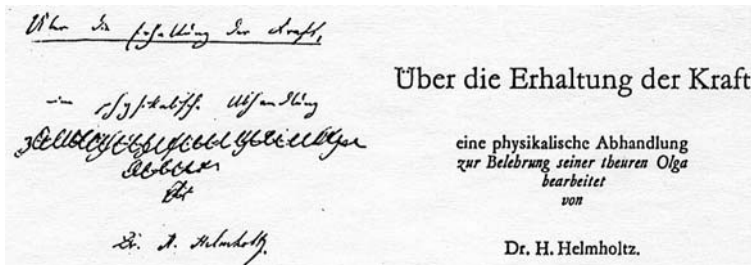 Über die Erhaltung der Kraft,
eine physikalische Abhandlung
Dr. H. Helmholtz.
Über die Erhaltung der Kraft
eine physikalische Abhandlung
zur Belehrung seiner theuren Olga
bearbeitet
von
Dr. H. Helmholtz.